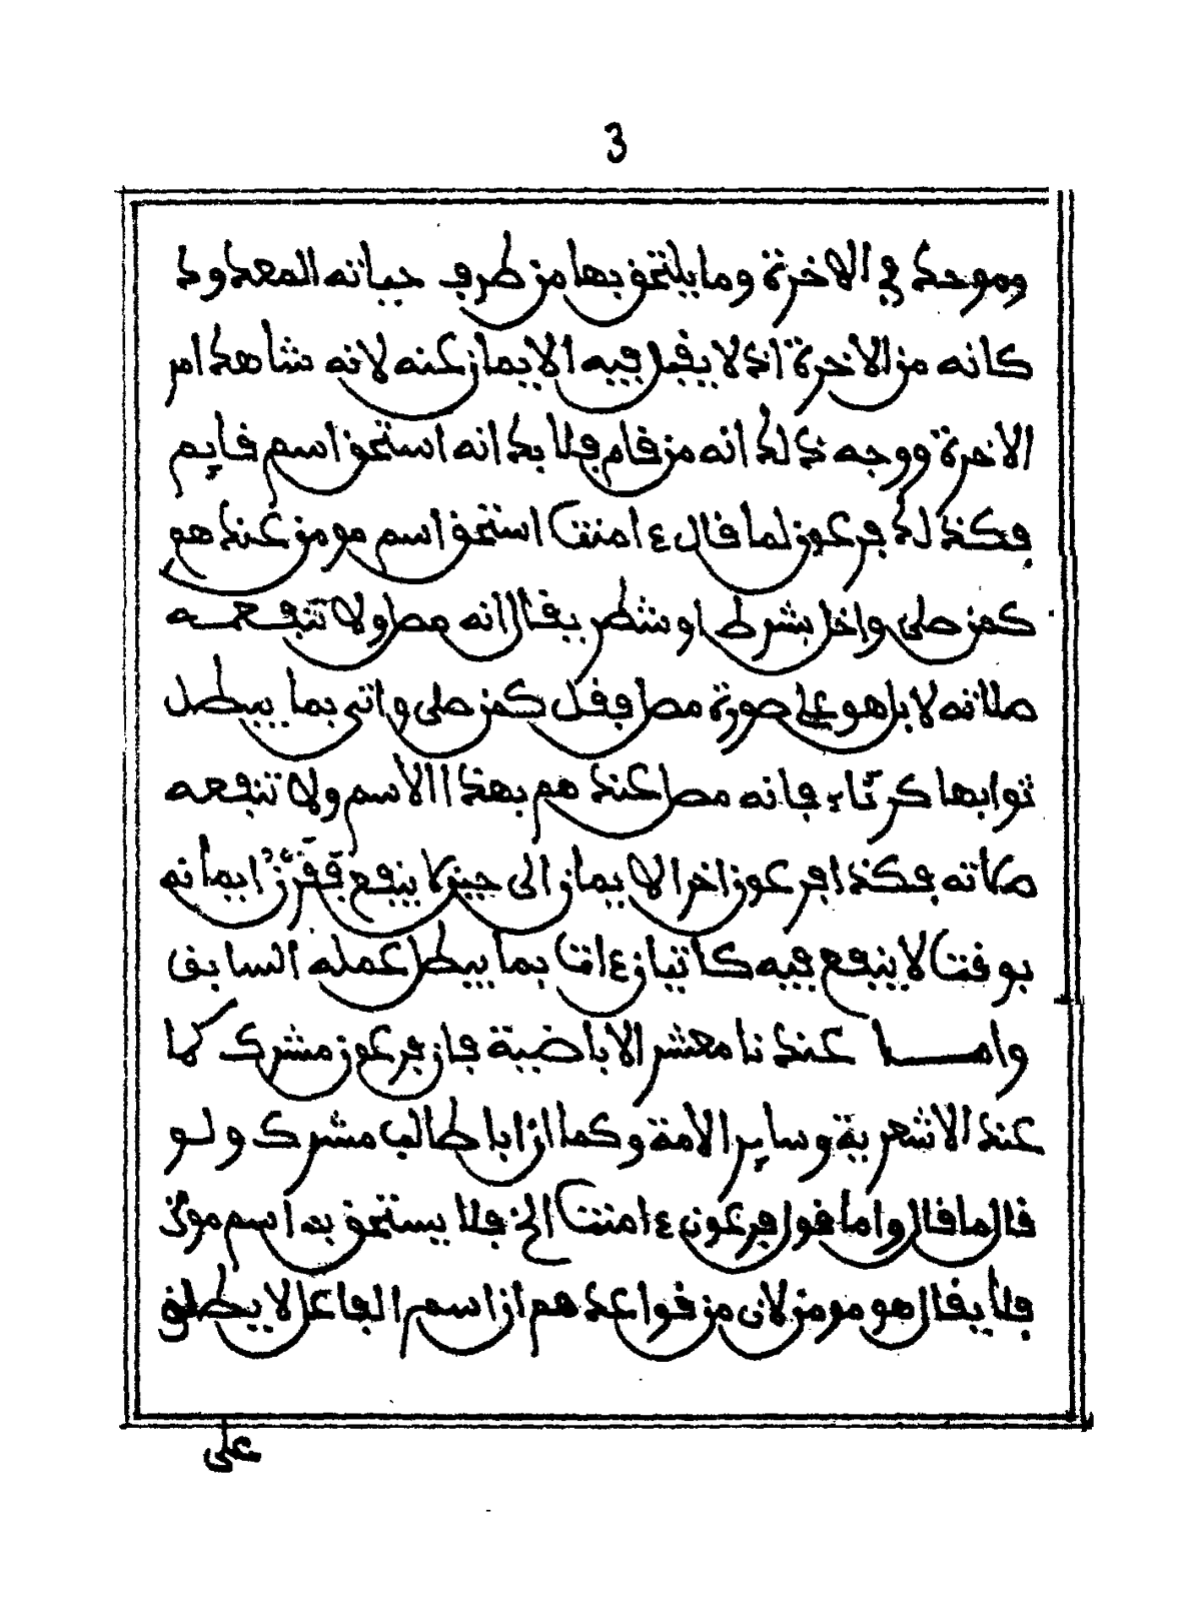 3
وموحد في الاخرة وما يلتحق بها من طرف حياته المعدود
كانه من الاخرة اذ لا يقبل فيه الايمان عنه لانه شاهد امر
الاخرة ووجه ذلك انه من قام فلا بد انه استحق اسم قايم
فكذلك فرعون لما قال ءامنت استحق اسم مومن عندهم
كمن صلى واخل بشرط او شطر يقال انه مصل ولا تنفعه
صلاته لا بل هو على صورة مصل فقل كمن صلى واتى بما يبطل
ثوابها كرئاء فانه مصل عندهم بهذا الاسم ولا تنفعه
صلاته فكذا فرعون اخر الايمان الى حين لا ينفع فقرن ايمانه
بوقت لا ينفع فيه كاتيان ءات بما يبطل عمله السابق
واما عندنا معشر الاباضية فان فرعون مشرك كما
عند الاشعرية وساير الامة وكما ان ابا طالب مشرك ولو
قال ما قال واما قول فرعون ءامنت الخ فلا يستحق به اسم مومن
فلا يقال هو مومن لان من قواعدهم ان اسم الفاعل لا يطلق
على